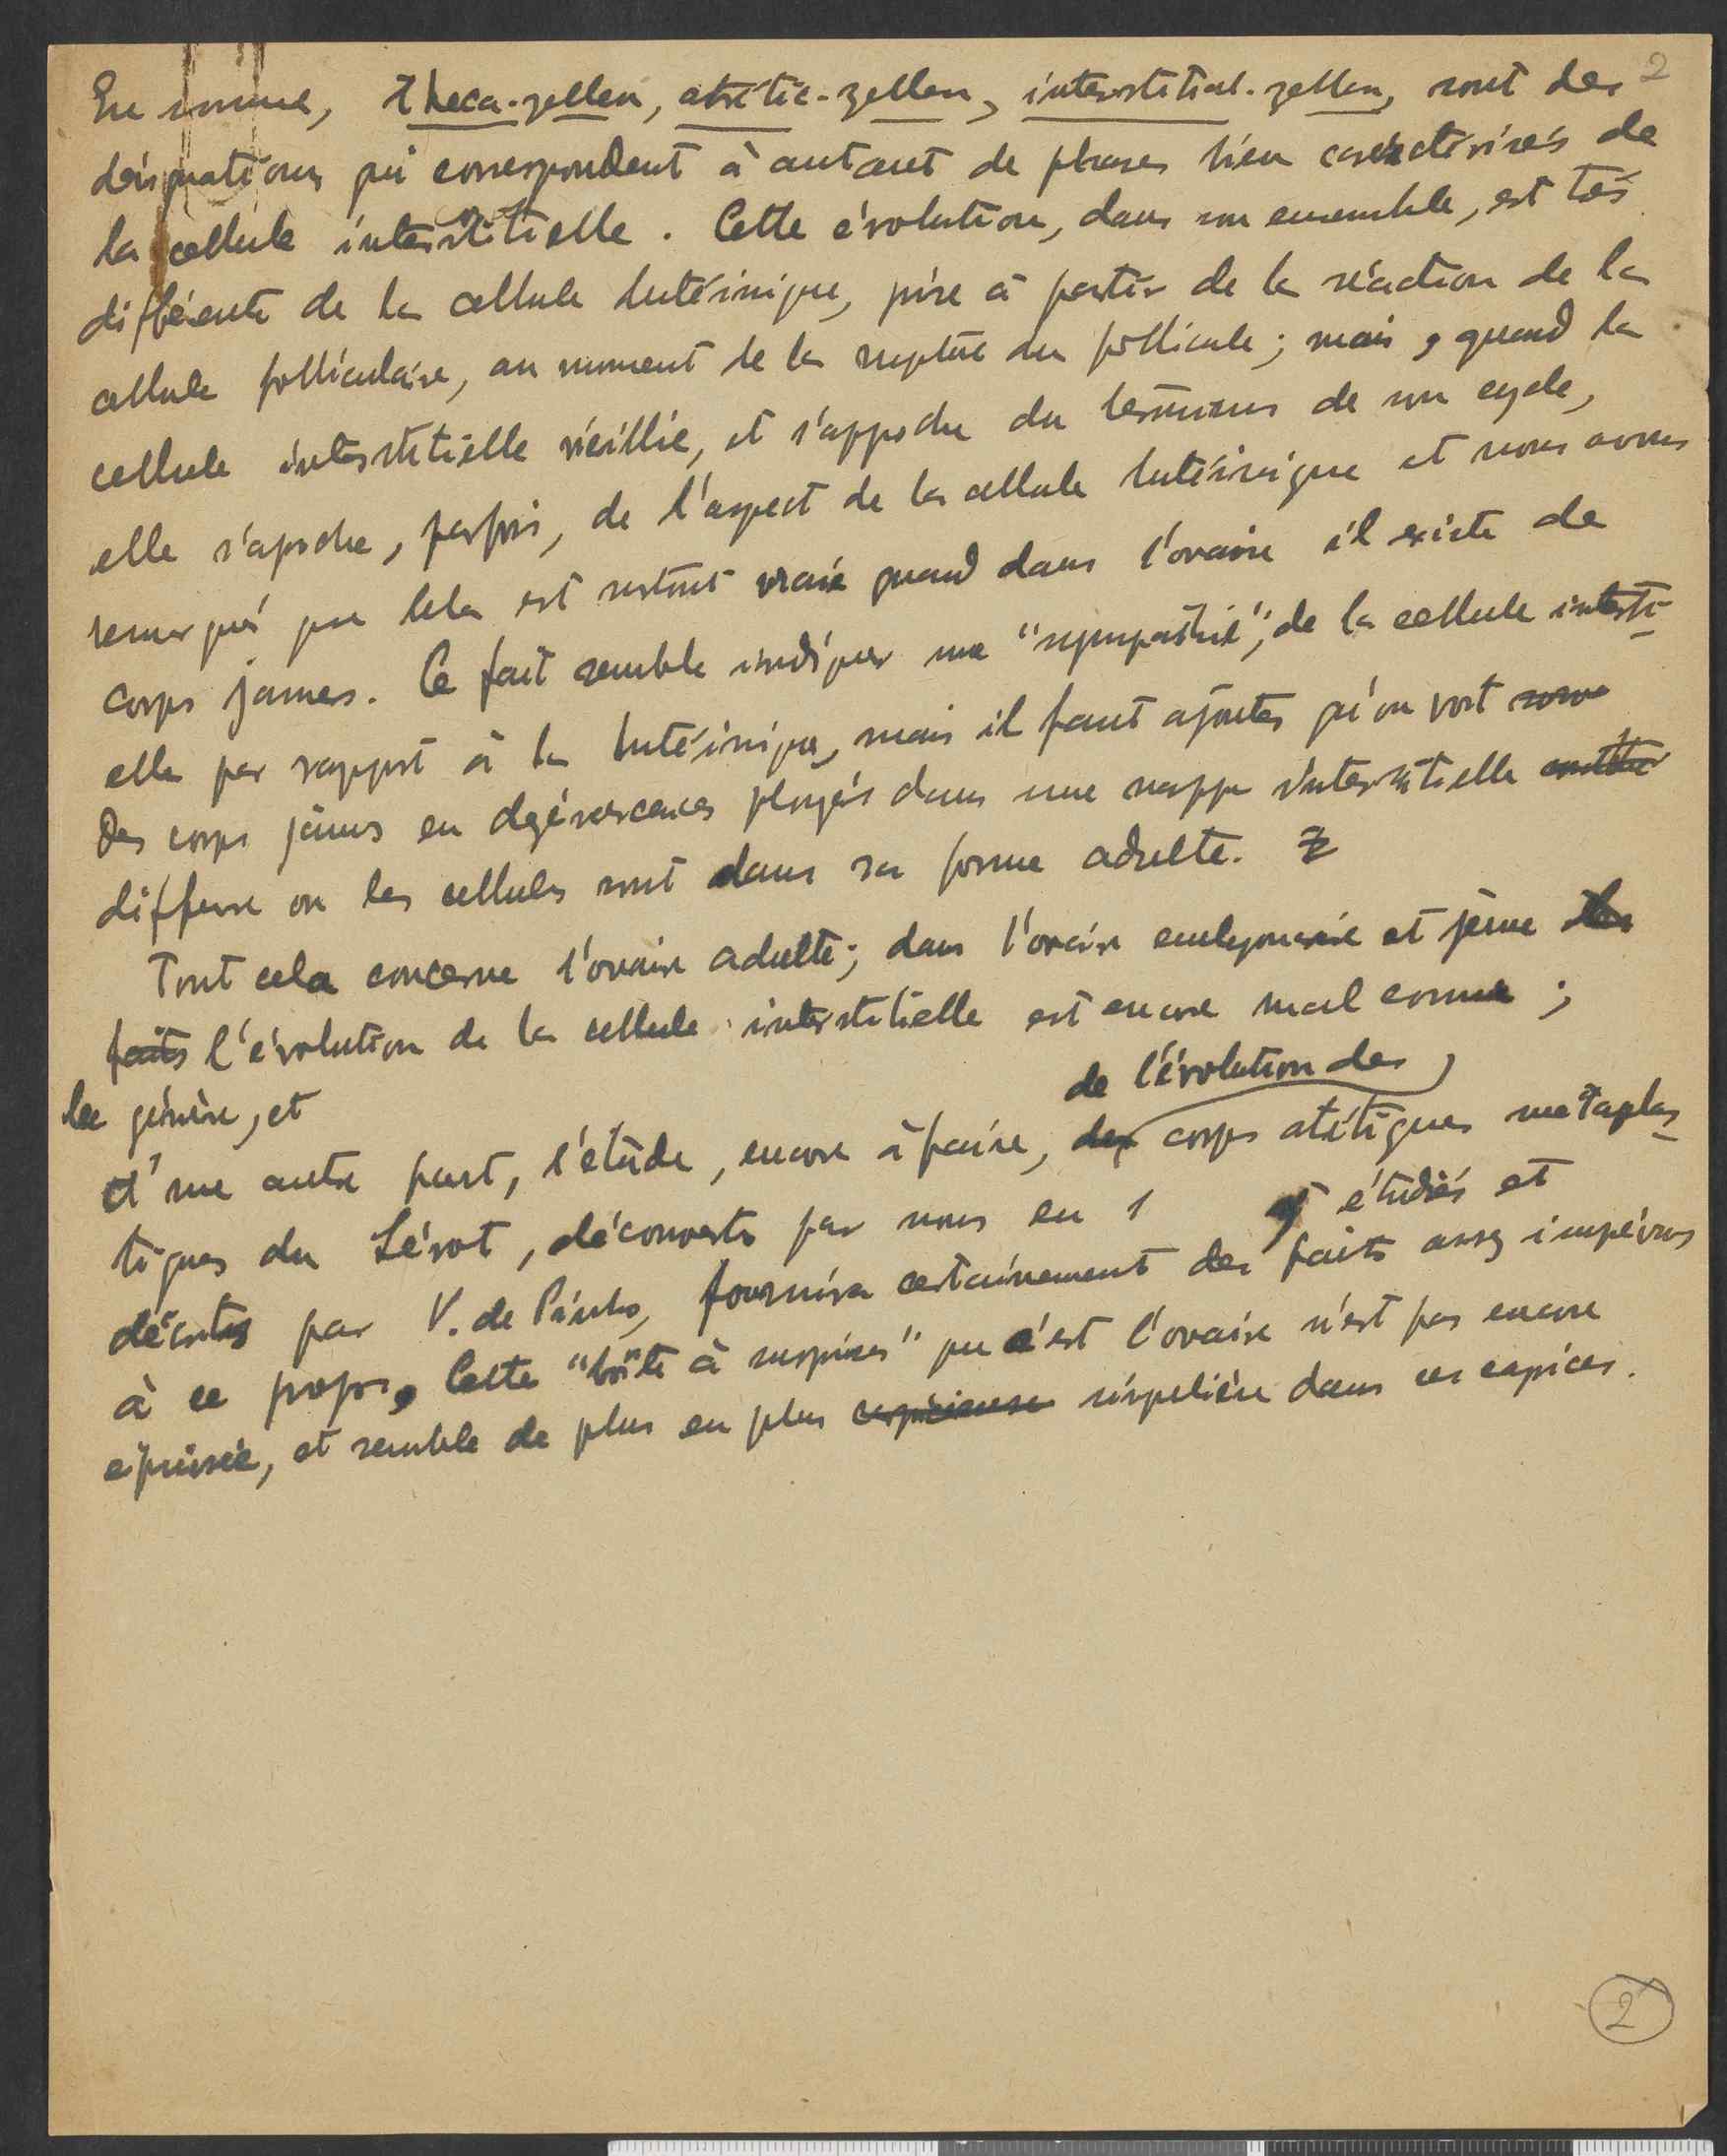 2
En somme, theca-zellen, atrétic-zellen, interstitial-zellen, sont des
désignations qui correspondent à autant de phases bien caractérisés de
la cellule interstitielle. Cette évolution, dans son ensemble, est très
différente de la cellule lutéinique, prise à partir de la réaction de la
cellule folliculaire, au moment de la rupture du follicule; mais, quand la
cellule interstitielle vieillie, et s'approche du terminus de son cycle,
elle s'aproche, parfois, de l'aspect de la cellule lutéinique et nous avons
remarqué que cela est surtout vraie quand dans l'ovaire il existe de
corps jaunes. Ce fait semble indiquer une "sympathie", de la cellule intersti-
elle par rapport à la lutéinique, mais il faut ajouter qu'on voit
des corps jaunes en dégénerescences plongés dans une nappe interstitielle
diffuse ou les cellules sont dans sa forme adulte.
Tout cela concerne l'ovaire adulte; dans l'ovaire embryonaire et jeune des
faits l'évolution de la cellule interstitielle est encore mal connue;
sa génèse, et
d'une autre part, l'étude, encore à faire, des corps atrétiques métaplas-
de l'évolution des
tiques du Lérot, découverts par nous en 1 et étudiés et
décrites par V. de Pinho, fournira certainement des faits assez imprévus
à ce propos. Cette "boîte à surprises" que c'est l'ovaire n'est pas encore
épuisée, et semble de plus en plus capricieuse singulière dans ses caprices.
2